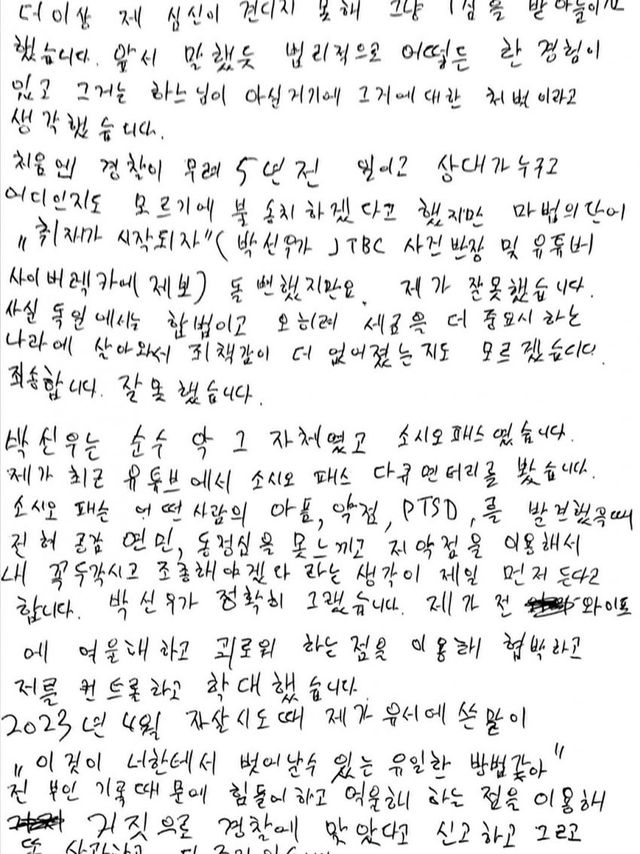 더이상 제 심신이 견디지 못해 그냥 1심을 받아들이고
했습니다. 앞서 말했듯 법리적으로 어떻든 한 경험이
있고 그거는 하느님이 아실거기에 그거에대한 처벌이라고
생각했습니다.
처음엔 경찰이 무려 5년전 일이고 상대가누구고
어디인지도 모르기에 불송치하겠다고 했지만 마법의단어
"취재가 시작되자"(박신우가 JTBC 사건반장 및 유튜버
사이버렉카에 제보) 돌변했지만요. 제가 잘못했습니다.
사실 독일에서는 합법이고 오히려 세금을 더 중요시 하는
나라에 살아와서 죄책감이 더 없어졌는지도 모르겠습니다.
죄송합니다. 잘못했습니다.
박신우는 순수 악 그 자체였고 소시오패스였습니다.
제가 최근 유튜브에서 소시오패스 다큐멘터리를 봤습니다.
소시오패스는 어떤사람의 아픔, 약점, PTSD,를 발견했을때
전혀 공감 연민, 동정심을 못느끼고 저약점을 이용해서
내 꼭두각시고 조종해야겠다 라는 생각이 제일 먼저 든다고
합니다. 박신우가 정확히 그랬습니다. 제가 전 와이프
에 억울해하고 괴로워 하는점을 이용해 협박하고
저를 컨트롤하고 학대했습니다.
2023년 4월 자살시도때 제가 유서에 쓴말이
"이것이 너한테서 벗어날수 있는 유일한 방법같아"
전 부인 기록때문에 힘들어하고 억울해 하는 점을 이용해
거짓으로 경찰에 맞았다고 신고하고 그리고